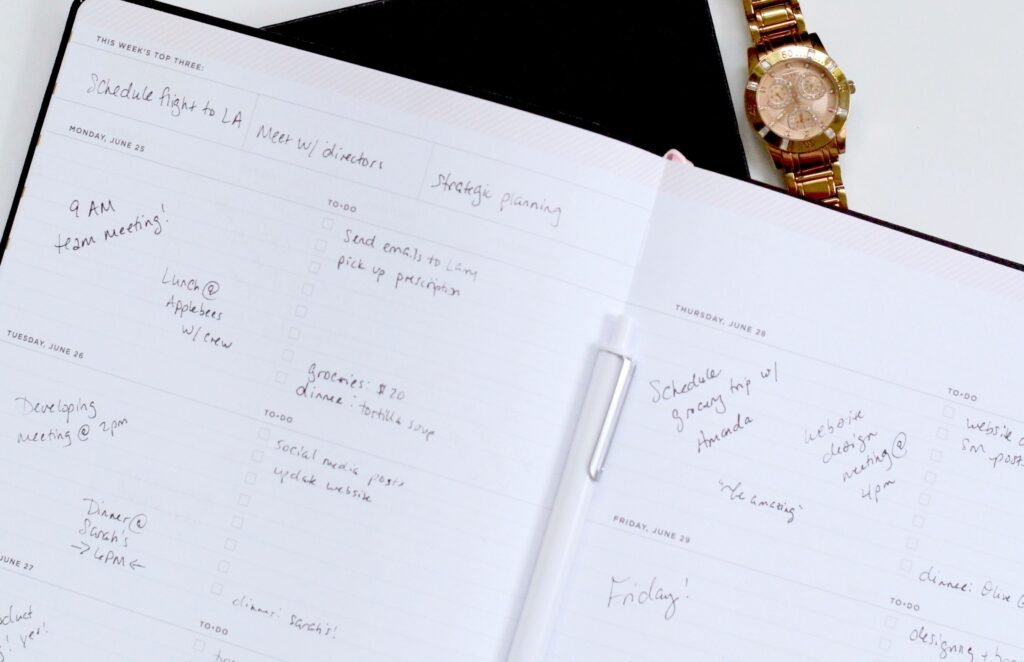 THIS WEEK'S TOP THREE:
Schedule flight to LA
Meet w/ directors
Strategic planning
MONDAY, JUNE 25
9 AM
team meeting!
Lunch @
Applebees
w/ crew
TO•DO
Send emails to Larry
pick up prescription
groceries: $20
dinner: tortilla soup
TUESDAY, JUNE 26
Developing
meeting @ 2pm
Dinner @
Sarah's
→ 6PM ←
TO•DO
social media posts
update website
dinner: Sarah's!
JUNE 27
yes!
TO•DO
THURSDAY, JUNE 28
Schedule
grocery trip w/
Amanda
website
design
meeting @
4pm
"be amazing"
TO•DO
website
SM posts
dinner: Olive
FRIDAY, JUNE 29
Friday!
TO•DO
designing +